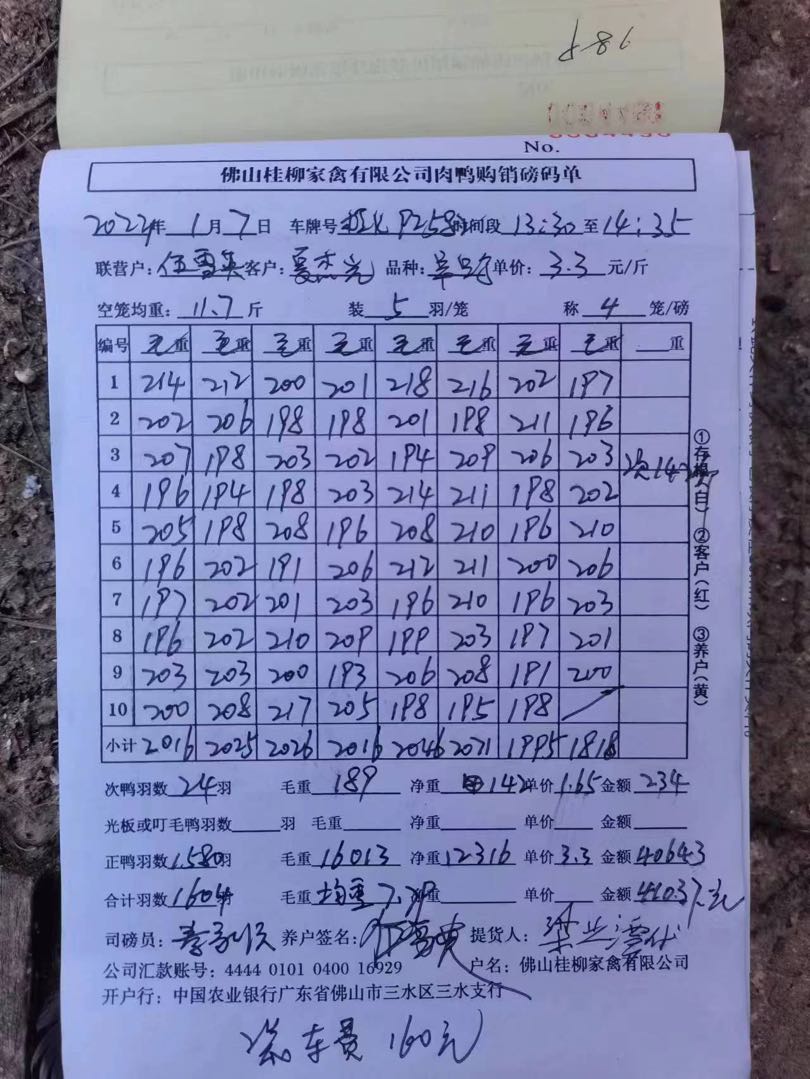 No.
佛山桂柳家禽有限公司肉鸭购销磅码单
年 1月7日 车牌号 时间段 13:30 至 14:35
联营户: 伍雪英 客户: 夏杰光 品种: 单价: 3.3 元/斤
空笼均重: 11.7 斤 装 5 羽/笼 称 4 笼/磅
编号 毛重 毛重 毛重 毛重 毛重 毛重 毛重 毛重 重
1 214 212 200 201 218 216 202 197
2 202 206 198 198 201 198 211 196
3 207 198 203 202 194 209 206 203
4 196 194 198 203 214 211 198 202
5 205 198 208 196 208 210 196 210
6 196 202 191 206 212 211 200 206
7 197 202 201 203 196 210 196 203
8 196 202 210 209 199 203 197 201
9 203 203 200 193 206 208 191 200
10 200 208 217 205 198 195 198
小计 2016 2025 2026 2016 2046 2071 1995 1818
次鸭羽数 24 羽 毛重 189 净重 142 单价 1.65 金额 234
光板或叮毛鸭羽数 羽 毛重 净重 单价 金额
正鸭羽数 1580 羽 毛重 16013 净重 12316 单价 3.3 金额 40643
合计羽数 1604 毛重 均重 净重 单价 金额 元
司磅员: 养户签名: 提货人:
公司汇款账号: 4444 0101 0400 16929 户名: 佛山桂柳家禽有限公司
开户行: 中国农业银行广东省佛山市三水区三水支行
①存根(白) ②客户(红) ③养户(黄)
车费 160元